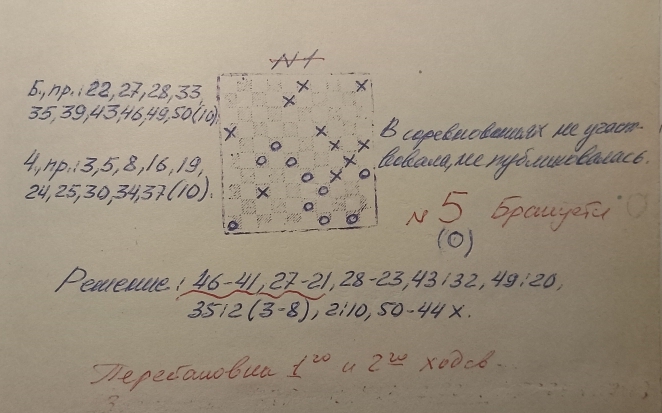 N1
Б., пр.: 22, 27, 28, 33,
35, 39, 43, 46, 49, 50 (10)
Ч, пр.: 3, 5, 8, 16, 19,
24, 25, 30, 34, 37 (10).
В соревнованиях не участ-
вовала, не публиковалась.
N 5
(0)
Решение: 46-41, 27-21, 28-23, 43:32, 49:20,
35:2 (3-8), 2:10, 50-44 x.
Перестановка 1го и 2го ходов.